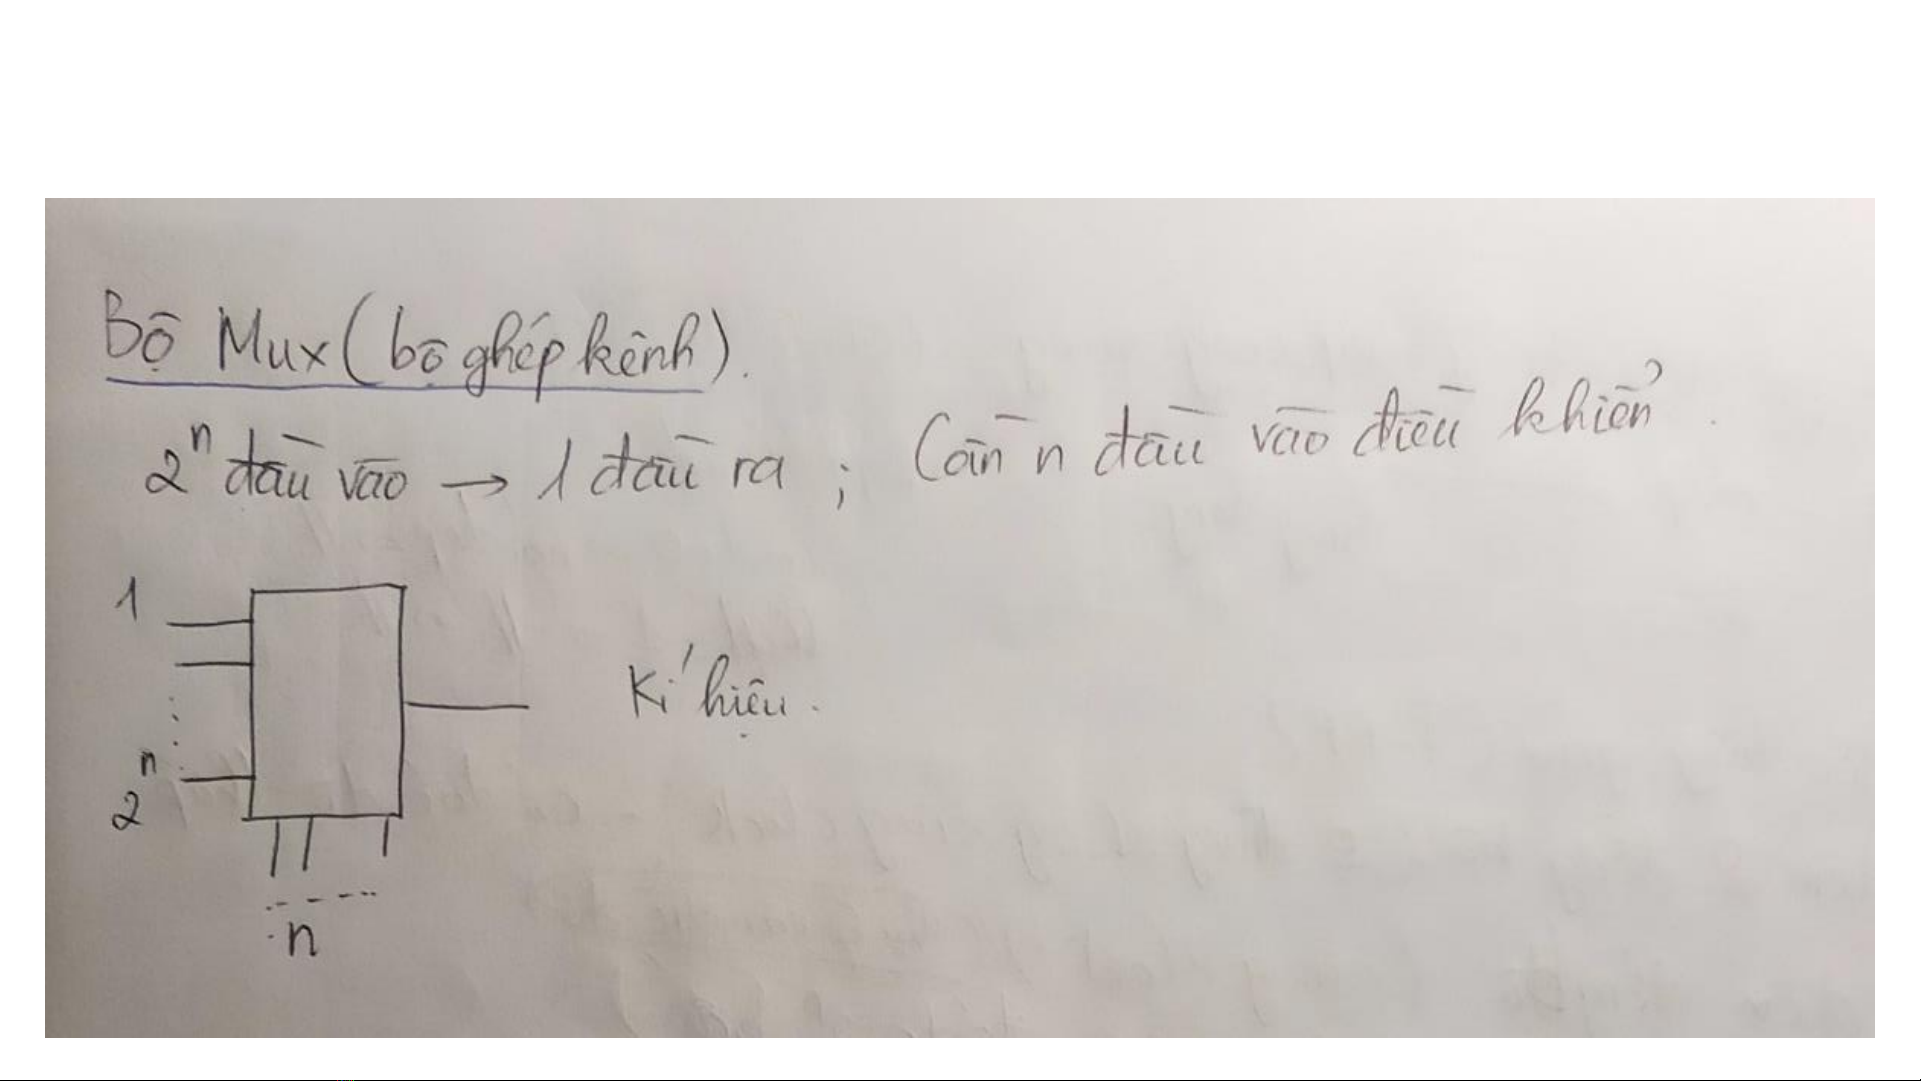 Bộ Mux (bộ ghép kênh).
2ⁿ đầu vào → 1 đầu ra ; Cần n đầu vào điều khiển.
1
Kí hiệu.
2ⁿ
n